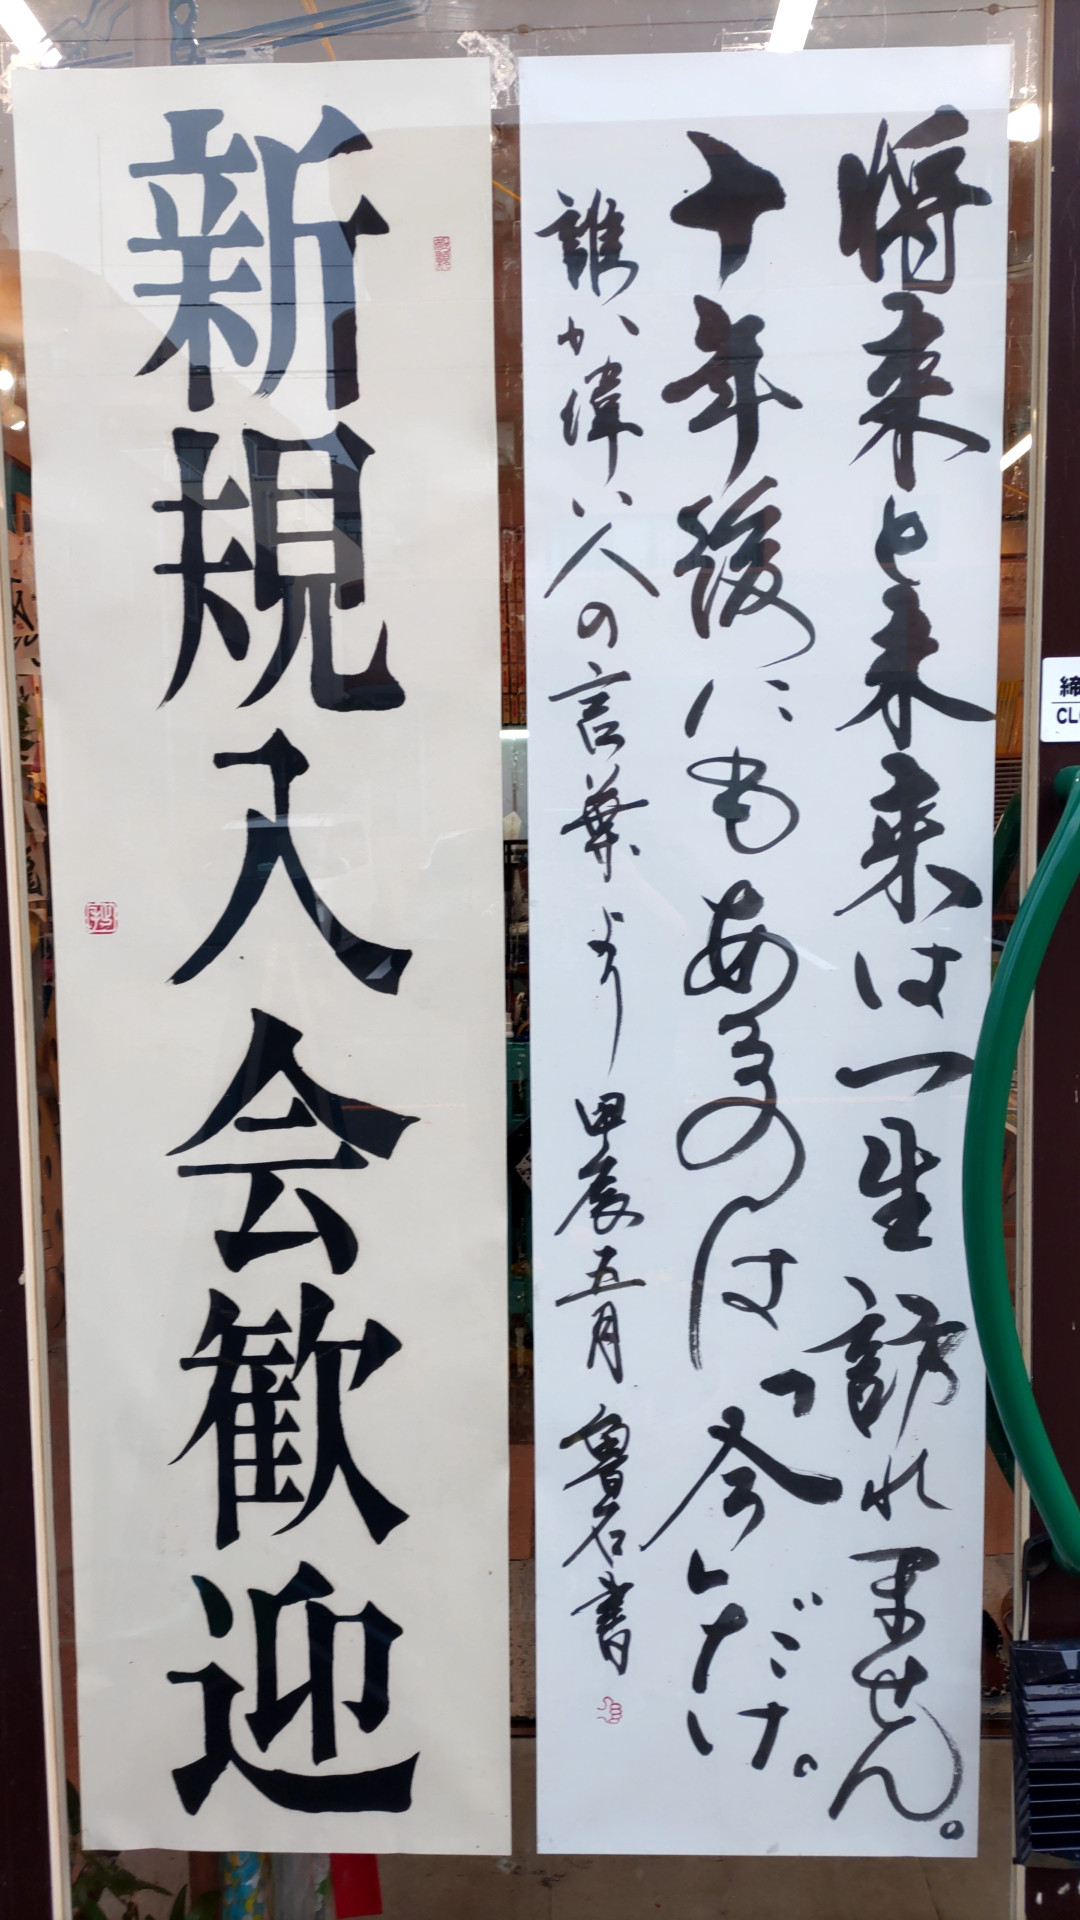 将来と未来は一生訪れません。
十年後にもあるのは「今」だけ。
誰か偉い人の言葉より 甲辰五月 魯石書
新規入会歓迎
締
CL